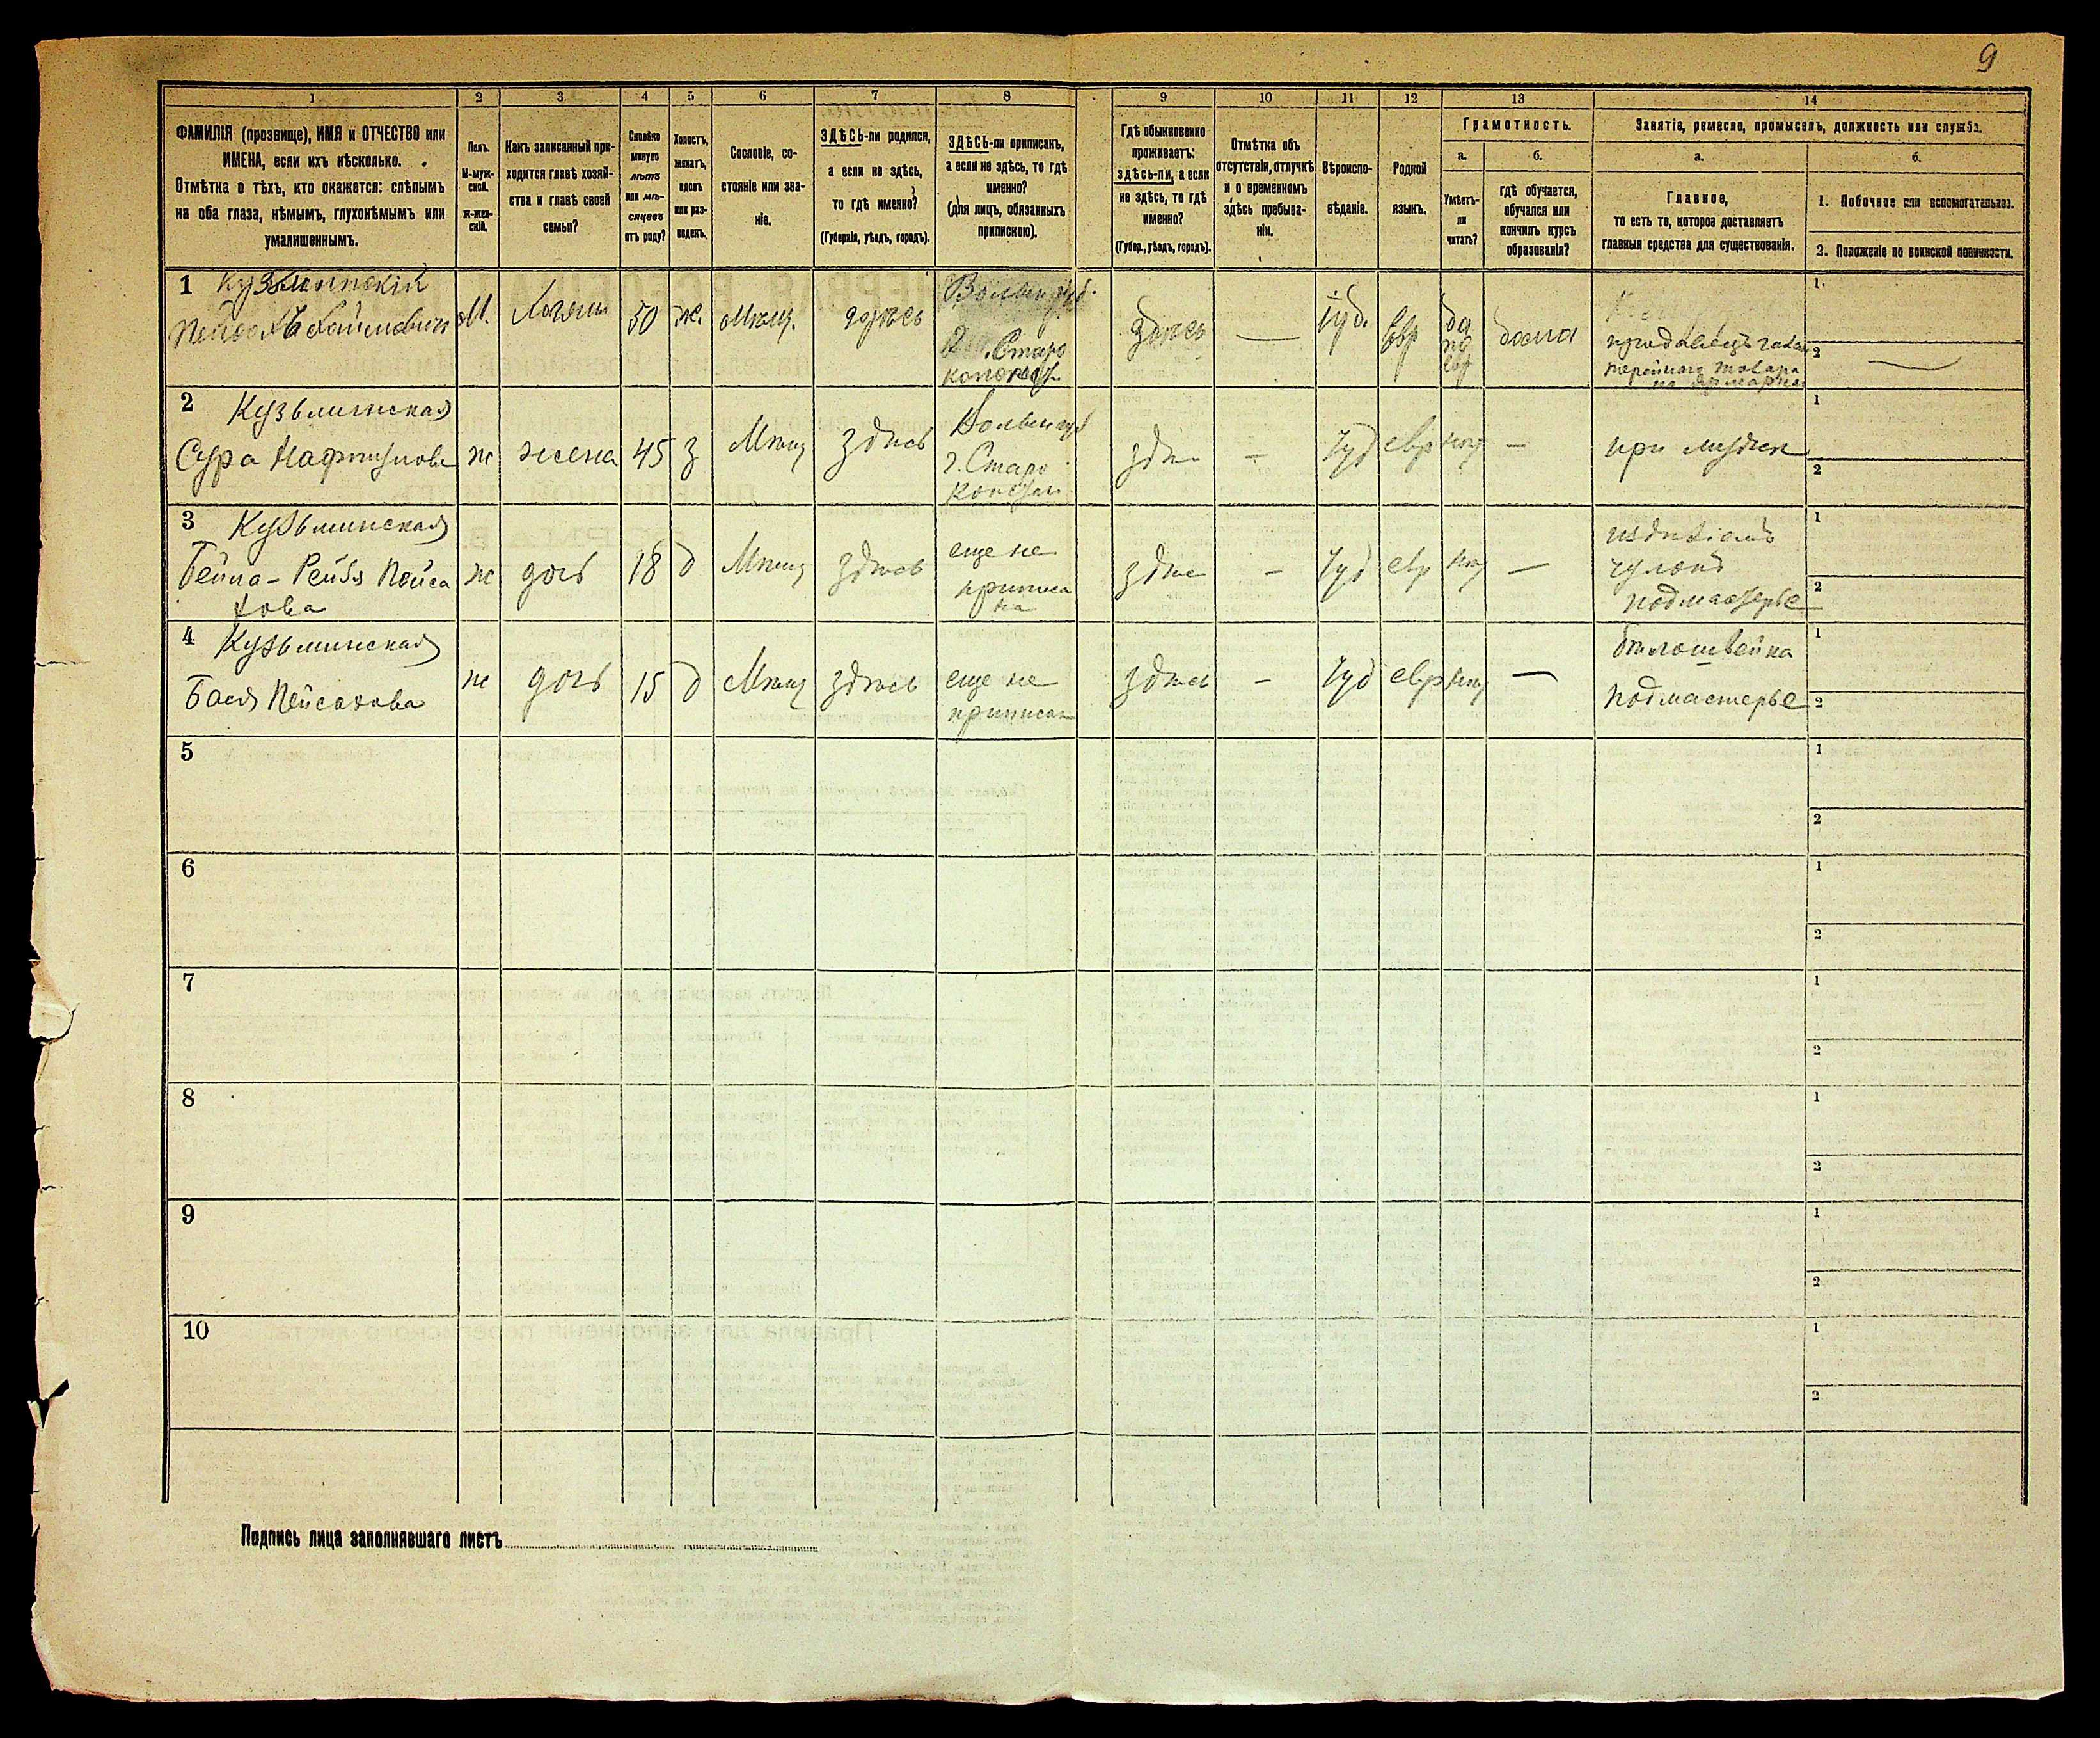 9
1 2 3 4 5 6 7 8 9 10 11 12 13 14
ФАМИЛІЯ (прозвище), ИМЯ и ОТЧЕСТВО или
ИМЕНА, если ихъ нѣсколько.
Отмѣтка о тѣхъ, кто окажется: слѣпымъ
на оба глаза, нѣмымъ, глухонѣмымъ или
умалишеннымъ.
Полъ.
М-муж-
ской.
ж-жен-
скій.
Какъ записанный при-
ходится главѣ хозяй-
ства и главѣ своей
семьи?
Сколько
минуло
лѣтъ
или мѣ-
сяцевъ
отъ роду?
Холостъ,
женатъ,
вдовъ
или раз-
веденъ.
Сословіе, со-
стояніе или зва-
ніе.
ЗДѢСЬ-ли родился,
а если не здѣсь,
то гдѣ именно?
(Губернія, уѣздъ, городъ).
ЗДѢСЬ-ли приписанъ,
а если не здѣсь, то гдѣ
именно?
(для лицъ, обязанныхъ
припискою).
Гдѣ обыкновенно
проживаетъ:
здѣсь-ли, а если
не здѣсь, то гдѣ
именно?
(Губер., уѣздъ, городъ).
Отмѣтка объ
отсутствіи, отлучкѣ
и о временномъ
здѣсь пребыва-
ніи.
Вѣроиспо-
вѣданіе.
Родной
языкъ.
Грамотность.
а.
Умѣетъ-
ли
читать?
б.
гдѣ обучается,
обучался или
кончилъ курсъ
образованія?
Занятіе, ремесло, промыселъ, должность или служба.
а.
Главное,
то есть то, которое доставляетъ
главныя средства для существованія.
б.
1. Побочное или вспомогательное.
2. Положеніе по воинской повинности.
1 Кузьминскій
Пейсахъ Хаимовичъ
М. Хозяин 50 ж. Мѣщ. здѣсь
Волын губ.
г. Старо
констан
здѣсь — Іуд. евр
да
по
евр
дома
продавецъ галан
терейнаго товара
на ярмаркѣ
1.
2 —
2 Кузьминская
Сура Нафтулова
ж жена 45 з Мѣщ здѣсь
Волын губ
г. Старо
Констан
здѣс — Іуд евр нѣт —
при мужѣ
1
2
3 Кузьминская
Бейла-Рейзя Пейса
хова
ж дочь 18 д Мѣщ здѣсь
еще не
приписа
на
здѣс — Іуд евр нѣт —
издѣліемъ
чулокъ
подмастерье
1
2
4 Кузьминская
Бася Пейсахова
ж дочь 15 д Мѣщ здѣсь
еще не
приписан
здѣсь — Іуд евр нѣт —
бѣлошвейка
подмастерье
1
2
5
1
2
6
1
2
7
1
2
8
1
2
9
1
2
10
1
2
Подпись лица заполнявшаго листъ